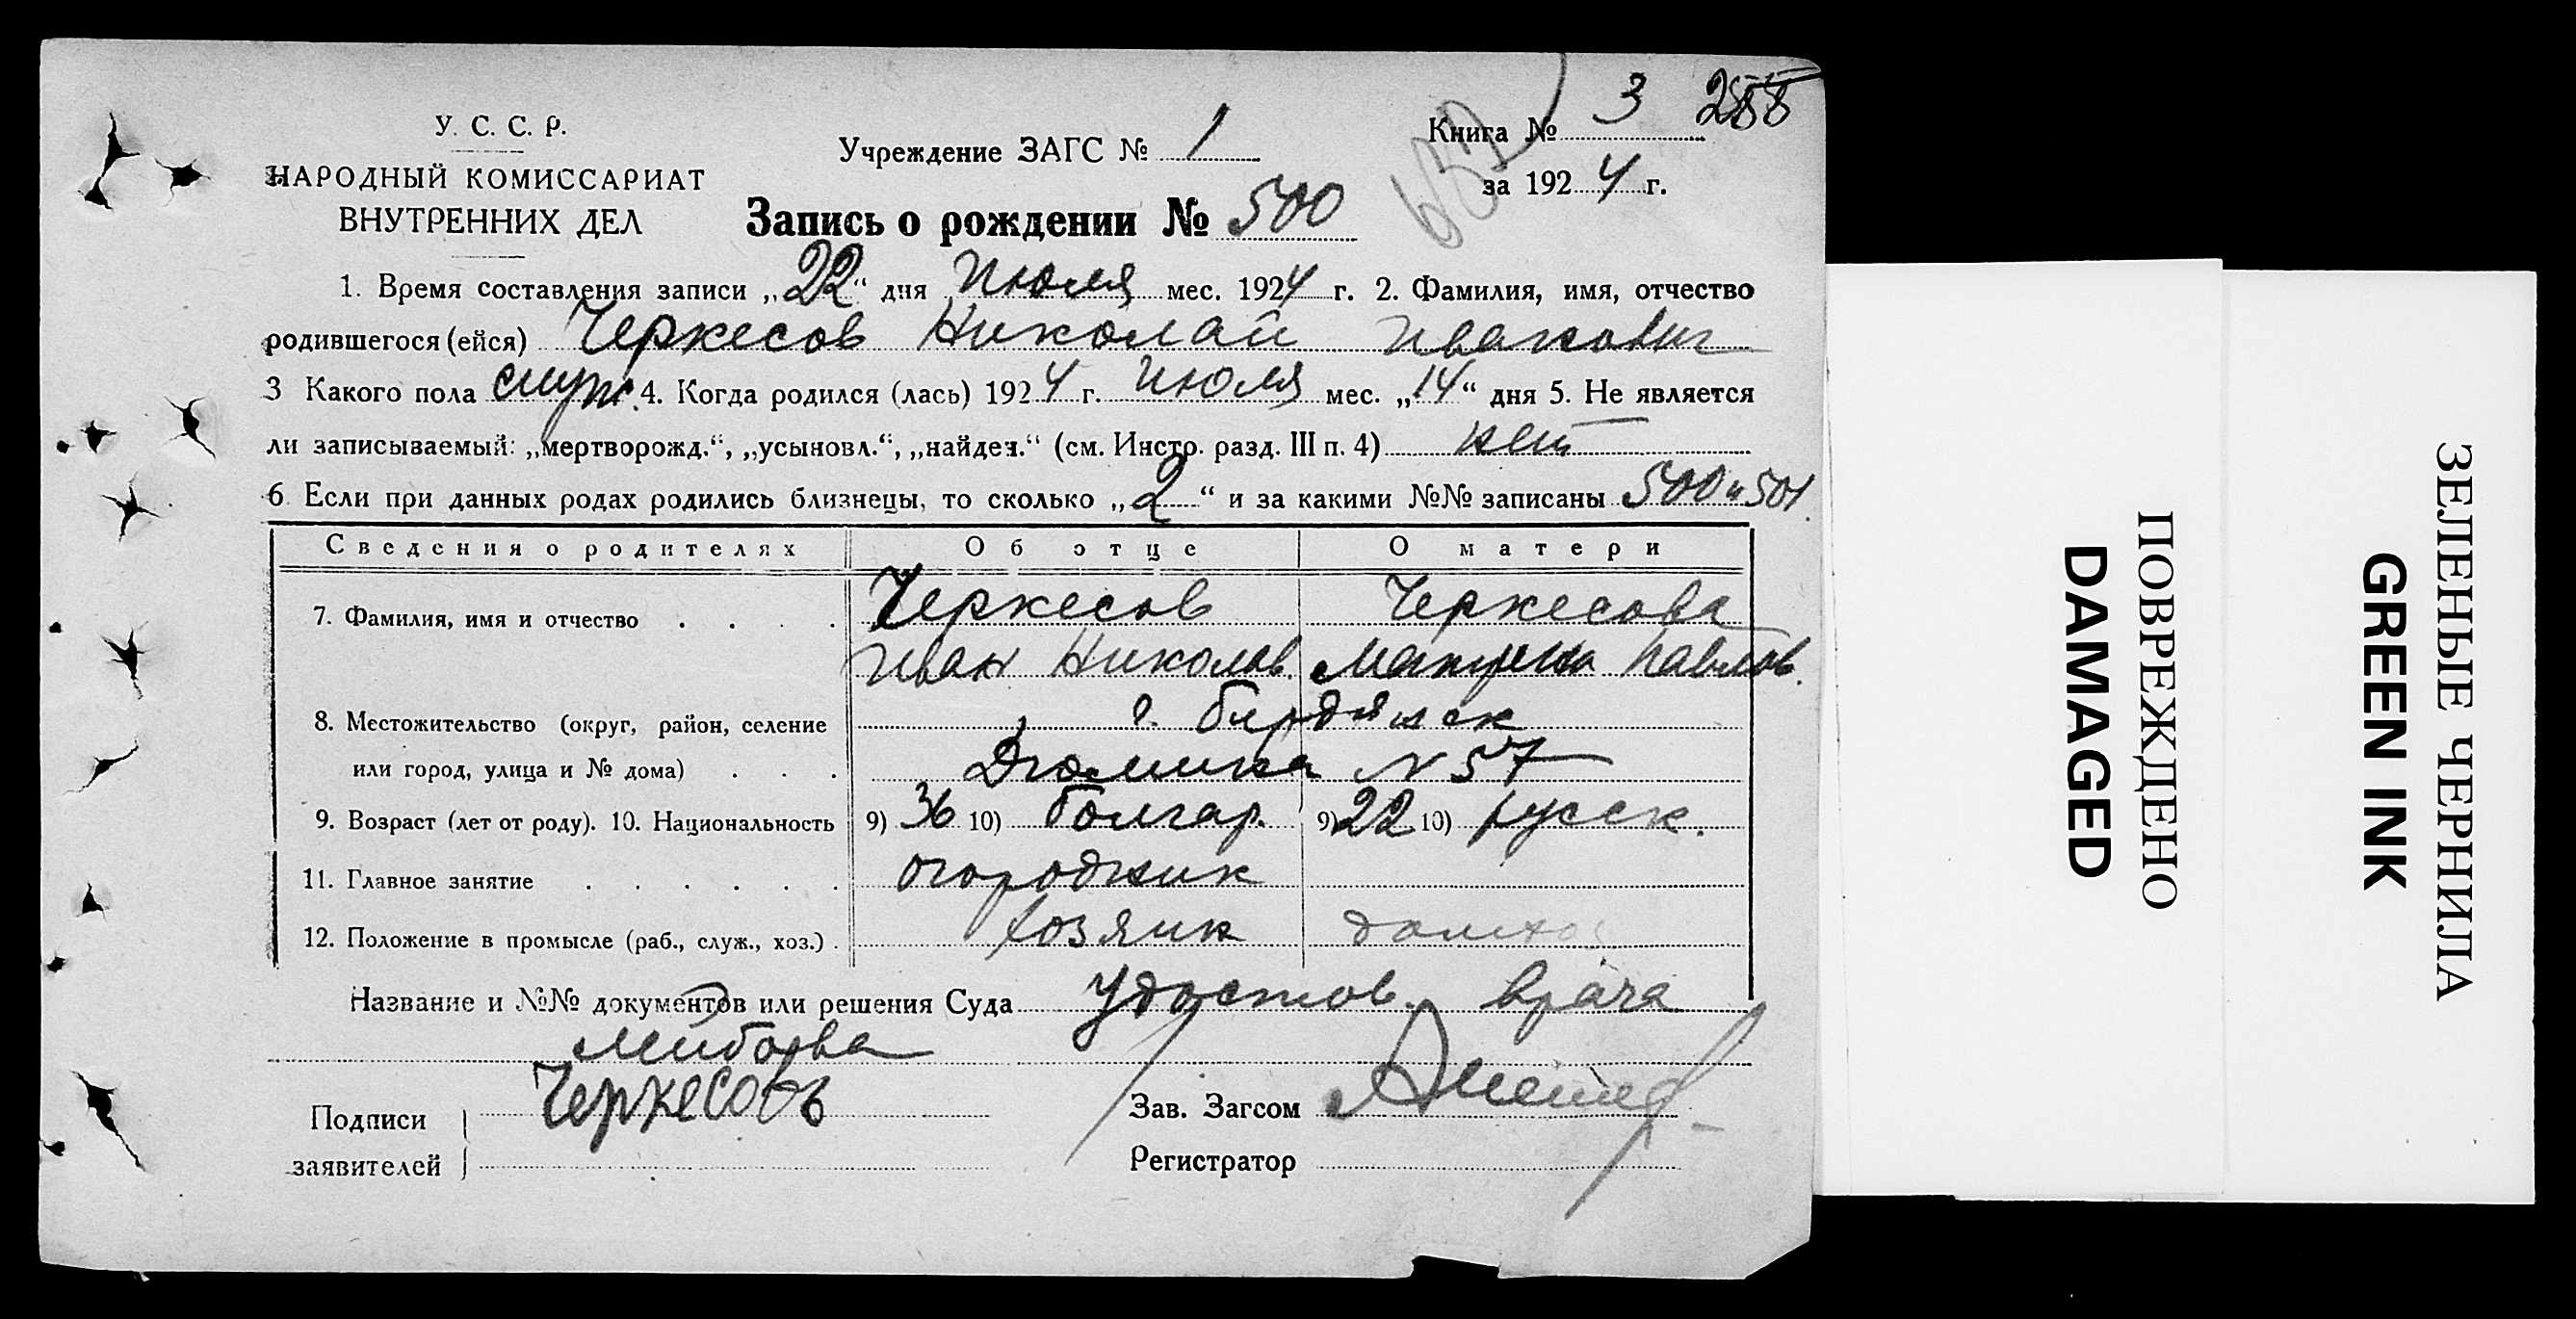 У. С. С. Р.
НАРОДНЫЙ КОМИССАРИАТ
ВНУТРЕННИХ ДЕЛ
Учреждение ЗАГС № 1
Книга № 3
за 1924 г.
Запись о рождении № 500
1. Время составления записи „22“ дня Июля мес. 1924 г. 2. Фамилия, имя, отчество
родившегося (ейся) Черкесов Николай Иванович
3 Какого пола 4. Когда родился (лась) 1924 г. Июля мес. „14“ дня 5. Не является
ли записываемый: „мертворожд.“, „усыновл.“, „найден.“ (см. Инстр. разд. III п. 4) нет
6. Если при данных родах родились близнецы, то сколько „2“ и за какими №№ записаны 500 и 501.
Сведения о родителях Об отце О матери
7. Фамилия, имя и отчество . . . . Черкесов Черкесова
Иван Николов. Матрена Павлов.
8. Местожительство (округ, район, селение г. Бердянск
или город, улица и № дома) . . . Дюмина N 57
9. Возраст (лет от роду). 10. Национальность 9) 36 10) болгар. 9) 22 10) русск.
11. Главное занятие . . . . . . огородник
12. Положение в промысле (раб., служ., хоз.) . хозяин домхоз
Название и №№ документов или решения Суда Удостов. врача
Черкесовъ
Подписи
заявителей
Зав. Загсом
Регистратор
ПОВРЕЖДЕНО
DAMAGED
ЗЕЛЕНЫЕ ЧЕРНИЛА
GREEN INK